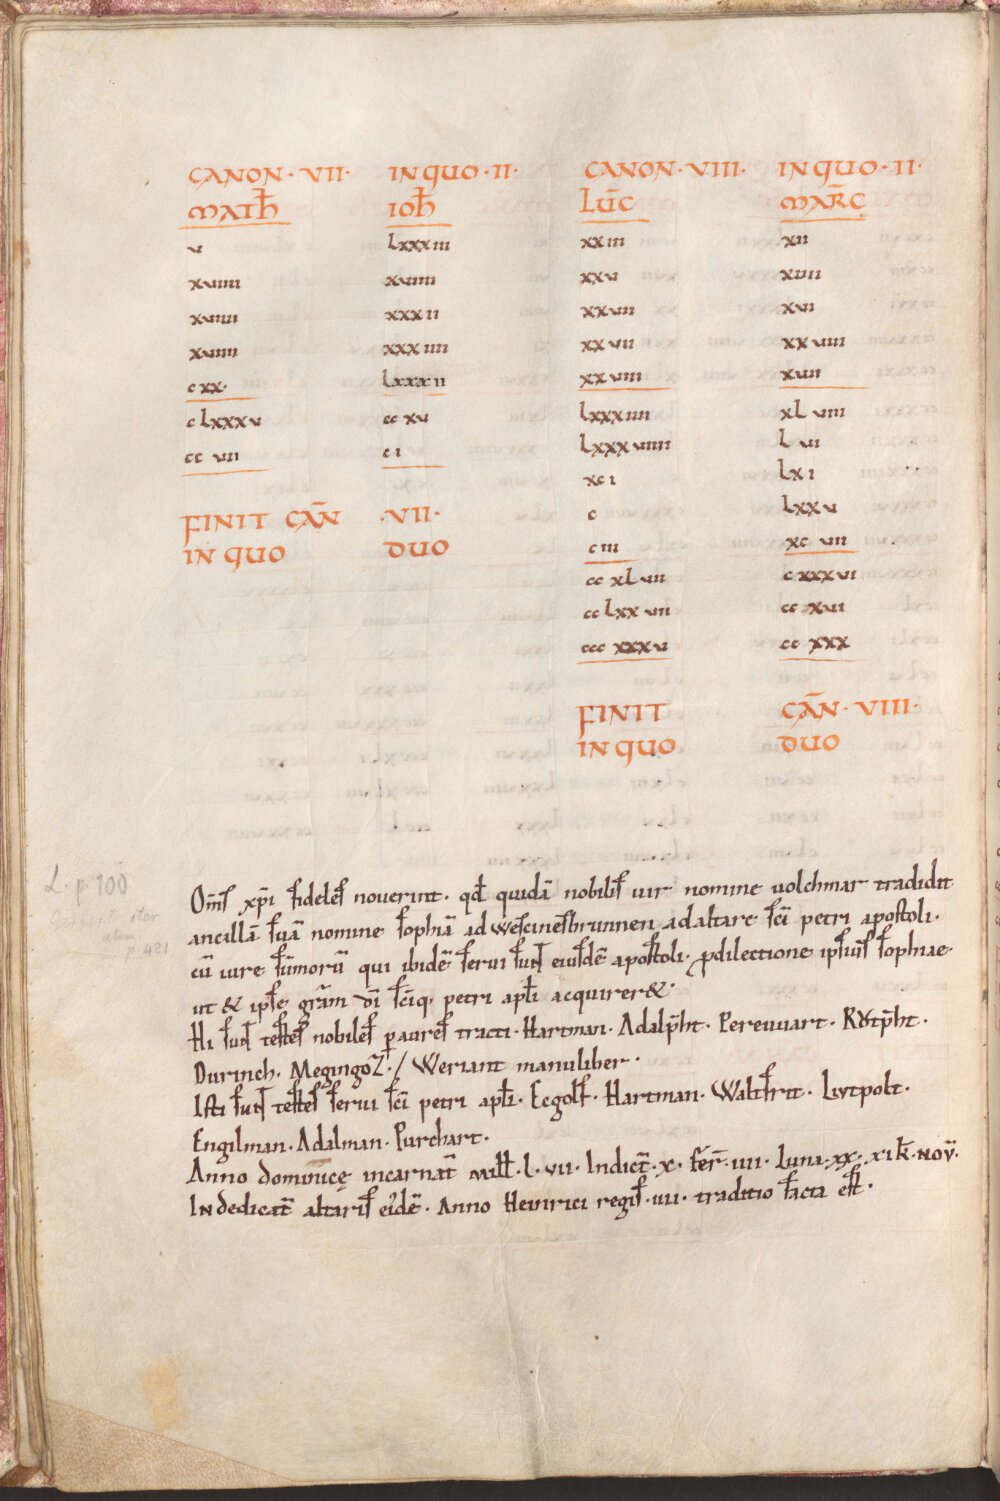 CANON · VII · IN QUO · II · CANON · VIII · IN QUO · II ·
MATH̄ IOH̄ LŪC MAR̄C
v Lxxxiii xxiii xii
xviiii xviiii xxv xiiii
xviiii xxxii xxvii xvi
xviiii xxxiiii xxvii xxviii
cxx · Lxxxii xxviii xvii
cLxxxv ccxv Lxxxiiii xLviii
ccvii ci Lxxxviiii Lvi
xci Lxi
c Lxxv
ciii xcvii
ccxLvii cxxxvi
ccLxxvii ccxvi
cccxxxv ccxxx
FINIT CAN̄ · VII ·
IN QUO DUO
FINIT CAN̄ · VIII ·
IN QUO DUO
L. p. 100
p. 421
Om̄s xp̄i fideles noverint · qđ quidā nobilis vir nomine volchmar tradidit
ancillā suā nomine sophiā ad wescinesbrunnen ad altare sc̄i petri apostoli ·
cū iure sūmorū qui ibidē servi sunt eiusdē apostoli · ꝓ dilectione ipsius sophiae ·
ut & ipse grām dī sc̄iq, petri apłi acquirer& ·
Hi sunt testes nobiles ꝑ aures tracti · Hartman · Adalp̄ht · Perevvart · Rŏtp̄ht ·
Durinch · Megingoz · / Weriant manuliber ·
Isti sunt testes servi sc̄i petri apłi · Ecgolf · Hartman · Waltfrit · Livtpolt ·
Engilman · Adalman · Purchart ·
Anno dominicę incarnat̄ mill · l · vii · Indict̄ · x · fer̄ · iiii · Luna · xx · xi k̄ · nov̄ ·
In dedicat̄ altaris eidē · Anno Heinrici regis · iiii · traditio facta est ·